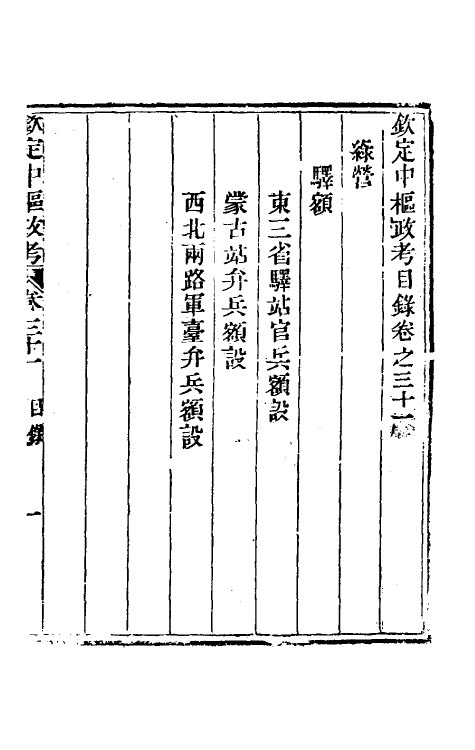 欽定中樞政考目錄卷之三十一
綠營
驛額
東三省驛站官兵額設
蒙古站弁兵額設
西北兩路軍臺弁兵額設
欽定中樞政考 卷三十一 目錄 一